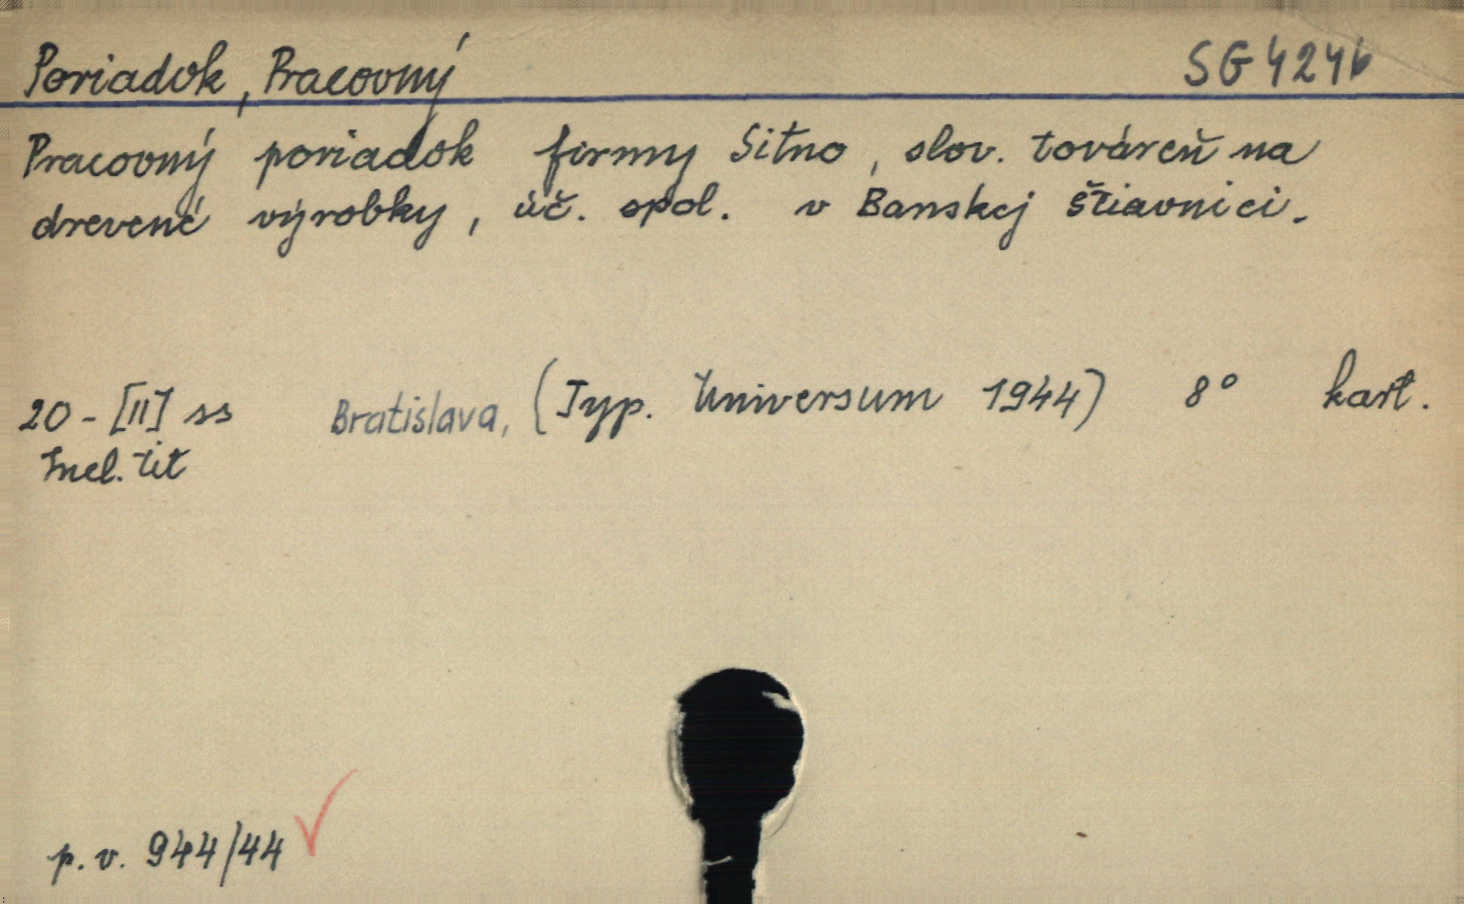 Poriadok, Pracovný SG 4246
Pracovný poriadok firmy Sitno, slov. továreň na
drevené výrobky, úč. spol. v Banskej Štiavnici.
20-[II] ss Bratislava, (Typ. Universum 1944) 8° kart.
Incl. tit
p. v. 944/44